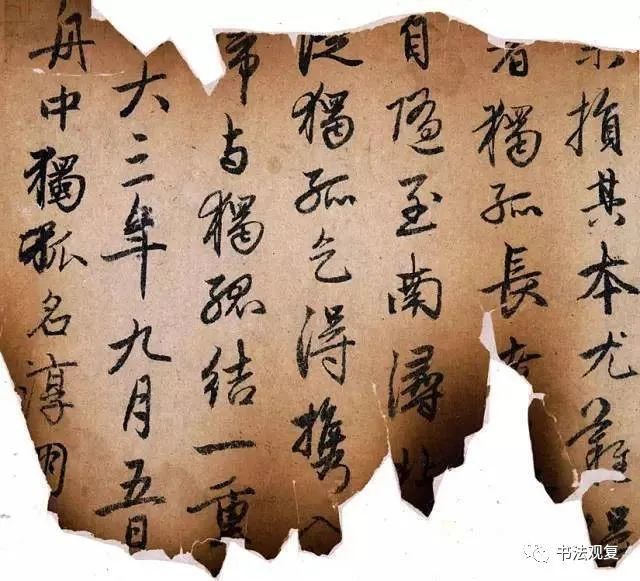 損其本尤難得
者獨孤長
自隨至南潯北
從獨孤乞得攜入
与獨孤結一重
大三年九月五日
舟中獨孤名淳朋
书法观复